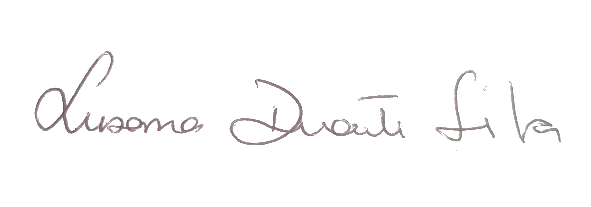 Susana Duarte Silva